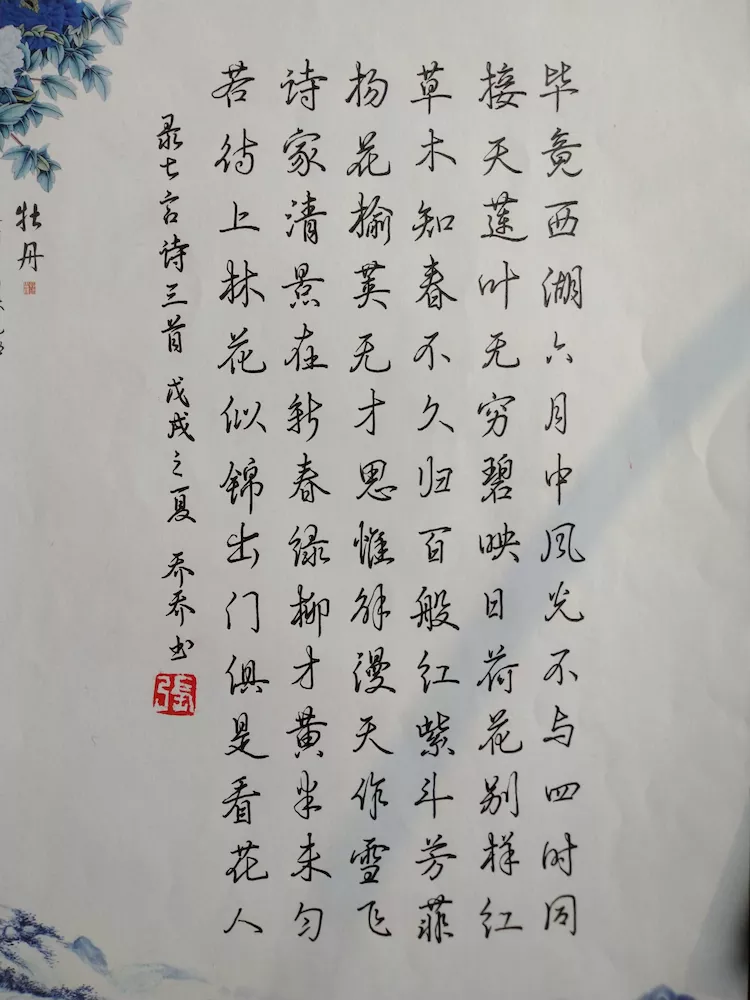 毕竟西湖六月中风光不与四时同
接天莲叶无穷碧映日荷花别样红
草木知春不久归百般红紫斗芳菲
杨花榆荚无才思惟解漫天作雪飞
诗家清景在新春绿柳才黄半未匀
若待上林花似锦出门俱是看花人
录七言诗三首 戊戌之夏 乔乔书
張
牡丹